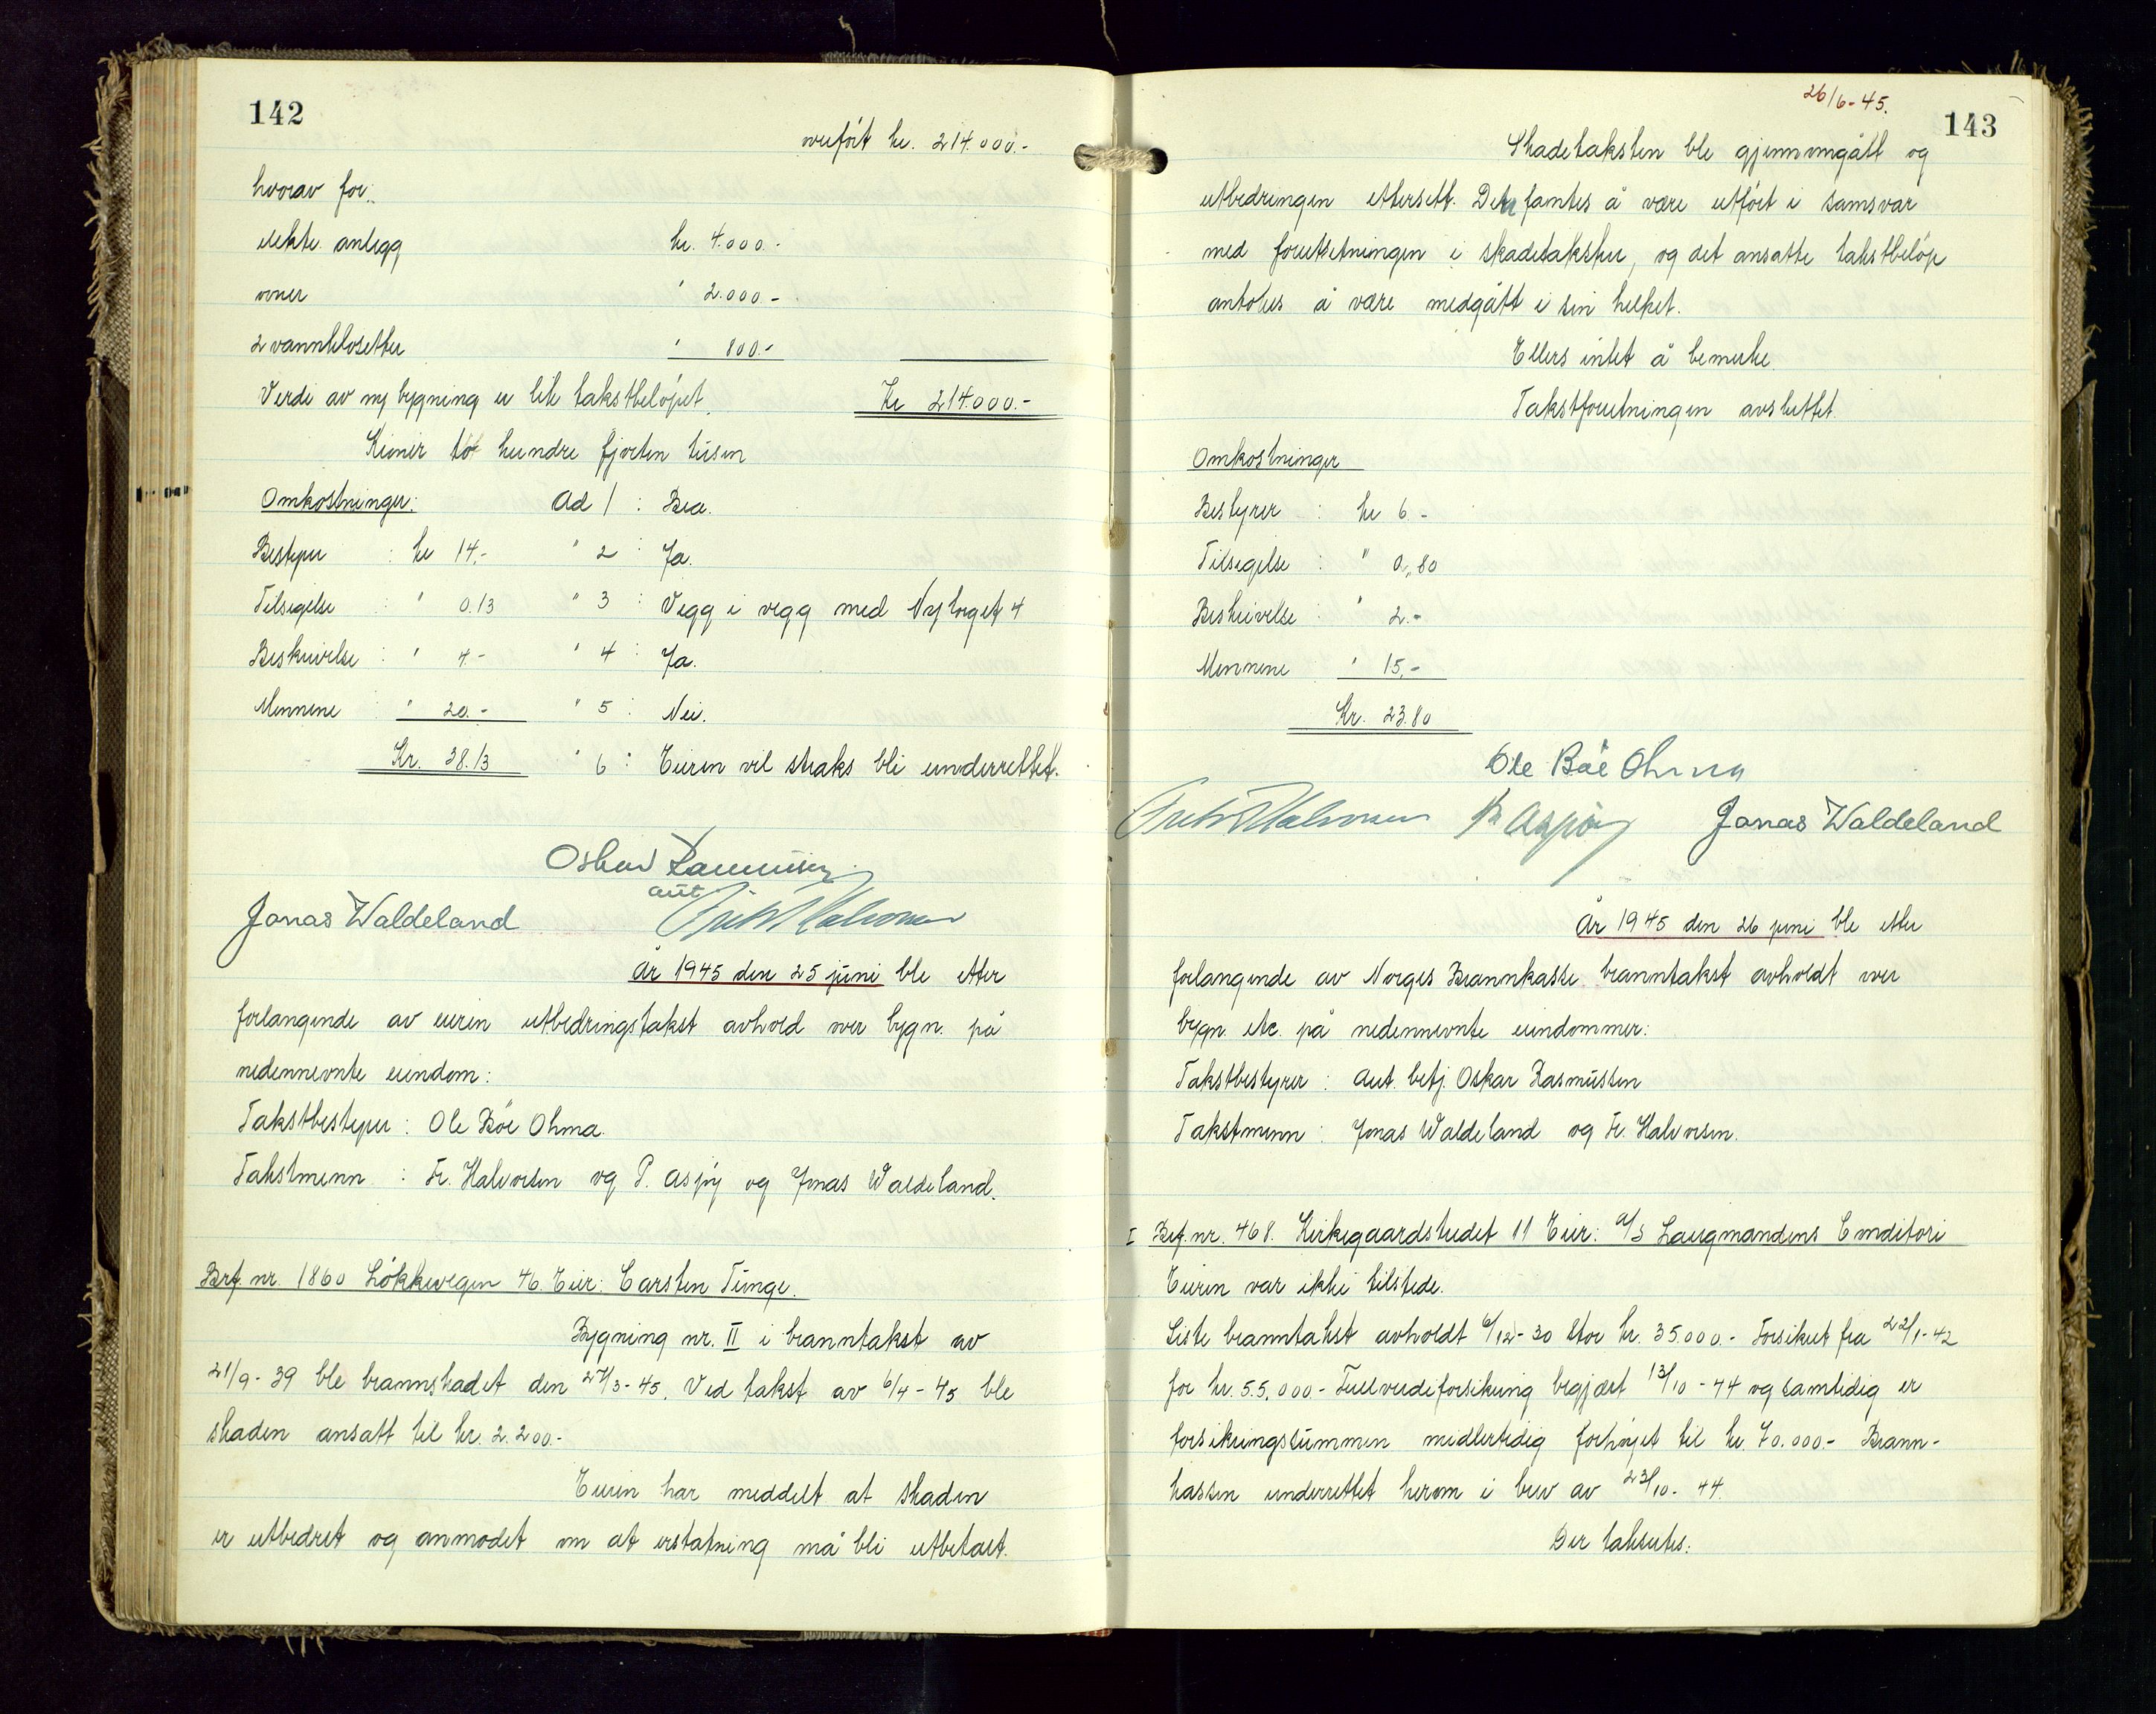 142
overført kr. 214.000.-
hvorav for:
elektr. anlegg kr. 4.000.-
ovner " 2.000.-
2 vannklosetter " 800.-
Verdi av ny bygning er lik takstbeløpet. Kr 214.000.-
Kroner to hundre fjorten tusen
Omkostninger: Ad 1 : Bra.
Bestyrer : kr 14.- " 2 : Ja.
Tilsigelse : " 0.13 " 3 : Vegg i vegg med Nytorget 4
Beskrivelse : " 4.- " 4 : Ja.
Mennene " 20.- " 5 : Nei.
Kr. 38.13 " 6 : Eieren vil straks bli underrettet.
Oskar Rasmussen
aut
Jonas Waldeland Fritz Halvorsen
År 1945 den 25 juni ble etter
forlangende av eieren utbedringstakst avhold over bygn. på
nedennevnte eiendom:
Takstbestyrer : Ole Böe Ohma.
Takstmenn : Fr. Halvorsen og P. Aspøy og Jonas Waldeland.
Brf. nr. 1860 Lökkevegen 46. Eier: Carsten Tünge.
Bygning nr. II i branntakst av
21/9-39 ble brannskadet den 27/3-45. Ved takst av 6/4-45 ble
skaden ansatt til kr. 2.200.-
Eieren har meddelt at skaden
er utbedret og anmodet om at erstatning må bli utbetalt.
26/6-45.
143
Skadetaksten ble gjennomgått og
utbedringen ettersett. Den fantes å være utført i samsvar
med forutsetningen i skadetaksten, og det ansatte takstbeløp
antokes å være medgått i sin helhet.
Ellers intet å bemerke.
Takstforretningen avsluttet.
Omkostninger
Bestyrer : kr 6.-
Tilsigelse : " 0,80
Beskrivelse : " 2.-
Mennene " 15,-
Kr. 23.80
Ole Böe Ohma
Fritz Halvorsen P. Aspøy Jonas Waldeland
År 1945 den 26 juni ble etter
forlangende av Norges Brannkasse branntakst avholdt over
bygn. etc. på nedennevnte eiendommer:
Takstbestyrer : Aut. betj. Oskar Rasmussen
Takstmenn : Jonas Waldeland og Fr. Halvorsen.
I Brf. nr. 468. Kirkegaardstredet 11 Eier: A/S Laugmandens Conditori
Eieren var ikke tilstede.
Siste branntakst avholdt 6/12-30 stor kr. 35.000.- Forsikret fra 22/1-42
for kr. 55.000.- Fullverdiforsikring begjært 13/10-44 og samtidig er
forsikringssummen midlertidig forhøjet til kr. 70.000.- Brann-
kassen underrettet herom i brev av 23/10-44.
Der takseres: